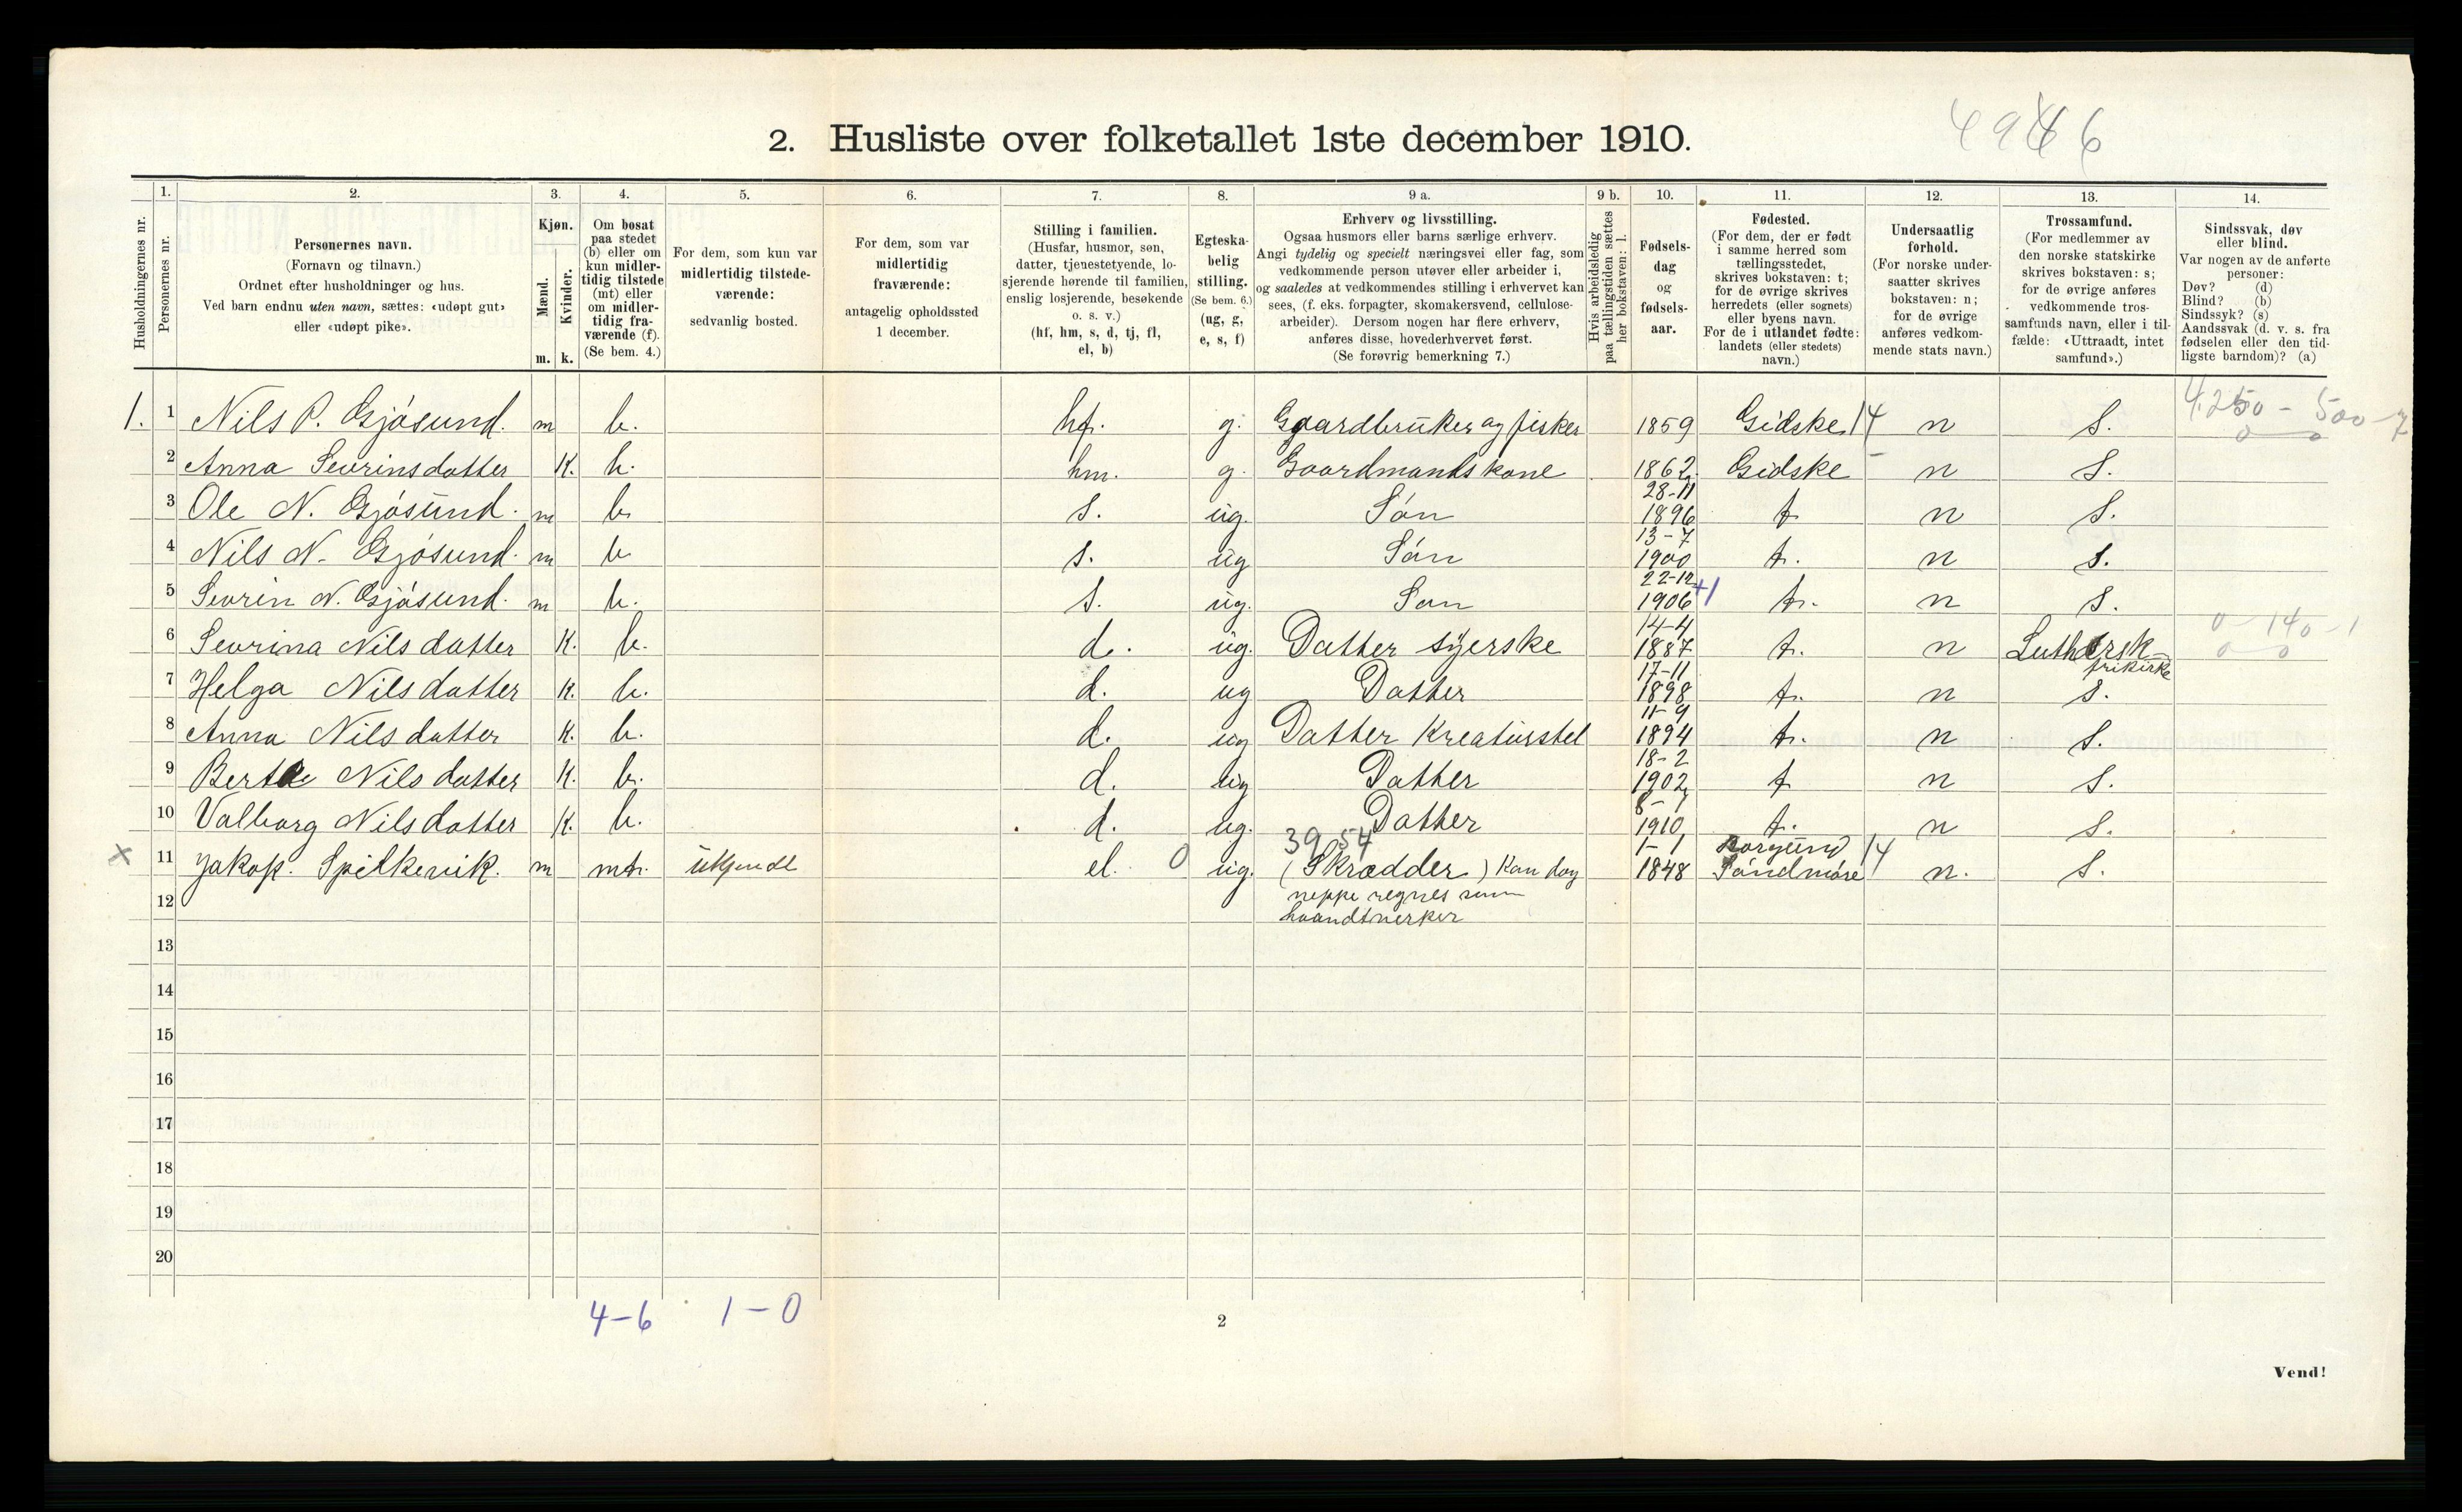 4946
2. Husliste over folketallet 1ste december 1910.
Husholdningernes nr.
1. Personernes nr.
2. Personernes navn. (Fornavn og tilnavn.) Ordnet efter husholdninger og hus. Ved barn endnu uten navn, sættes: «udøpt gut» eller «udøpt pike».
3. Kjøn. Mænd. m. Kvinder. k.
4. Om bosat paa stedet (b) eller om kun midlertidig tilstede (mt) eller om midlertidig fraværende (f). (Se bem. 4.)
5. For dem, som kun var midlertidig tilstedeværende: sedvanlig bosted.
6. For dem, som var midlertidig fraværende: antagelig opholdssted 1 december.
7. Stilling i familien. (Husfar, husmor, søn, datter, tjenestetyende, losjerende hørende til familien, enslig losjerende, besøkende o. s. v.) (hf, hm, s, d, tj, fl, el, b)
8. Egteskabelig stilling. (Se bem. 6.) (ug, g, e, s, f)
9 a. Erhverv og livsstilling. Ogsaa husmors eller barns særlige erhverv. Angi tydelig og specielt næringsvei eller fag, som vedkommende person utøver eller arbeider i, og saaledes at vedkommendes stilling i erhvervet kan sees, (f. eks. forpagter, skomakersvend, cellulosearbeider). Dersom nogen har flere erhverv, anføres disse, hovederhvervet først. (Se forøvrig bemerkning 7.)
9 b. Hvis arbeidsledig paa tællingstiden sættes her bokstaven: l.
10. Fødselsdag og fødselsaar.
11. Fødested. (For dem, der er født i samme herred som tællingsstedet, skrives bokstaven: t; for de øvrige skrives herredets (eller sognets) eller byens navn. For de i utlandet fødte: landets (eller stedets) navn.)
12. Undersaatlig forhold. (For norske undersaatter skrives bokstaven: n; for de øvrige anføres vedkommende stats navn.)
13. Trossamfund. (For medlemmer av den norske statskirke skrives bokstaven: s; for de øvrige anføres vedkommende trossamfunds navn, eller i tilfælde: «Uttraadt, intet samfund».)
14. Sindssvak, døv eller blind. Var nogen av de anførte personer: Døv? (d) Blind? (b) Sindssyk? (s) Aandssvak (d. v. s. fra fødselen eller den tidligste barndom)? (a)
1. 1 Nils P. Gjøsund. m b. hf. g. Gaardbruker og fisker 1859 Gidske 14 n S. 4250 - 500 - 7
0 0
2 Anna Sevrinsdatter K. b. hm. g. Gaardmandskone 1862 Gidske n S.
3 Ole N. Gjøsund. m b. s. ug. Søn 28-11 1896 t n S.
4 Nils N. Gjøsund. m b s. ug Søn 13-7 1900 t. n S.
5 Sevrin N. Gjøsund. m b. s. ug. Søn 22-12 1906 +1 t. n S.
6 Sevrina Nilsdatter K. b. d. ug. Datter syerske 14-4 1887 t. n Luthersk frikirke 0 - 140 - 1
0 0
7 Helga Nilsdatter K. b. d. ug Datter 17-11 1898 t. n S.
8 Anna Nilsdatter K. b. d. ug Datter Kreaturstel 11-9 1894 t. n S.
9 Berta Nilsdatter K. b. d. ug Datter 18-2 1902 t n S.
10 Valborg Nilsdatter K. b. d. ug. Datter 1910 t. n S.
39 54
x 11 Jakop. Spilkevik. m mt. ukjendt el. 0 ug. (Skrædder) Kan dog 1-1 1848 Borgund Søndmøre 14 n. S.
12 neppe regnes som
haandtverker
13
14
15
16
17
18
19
20
4-6 1-0
2
Vend!